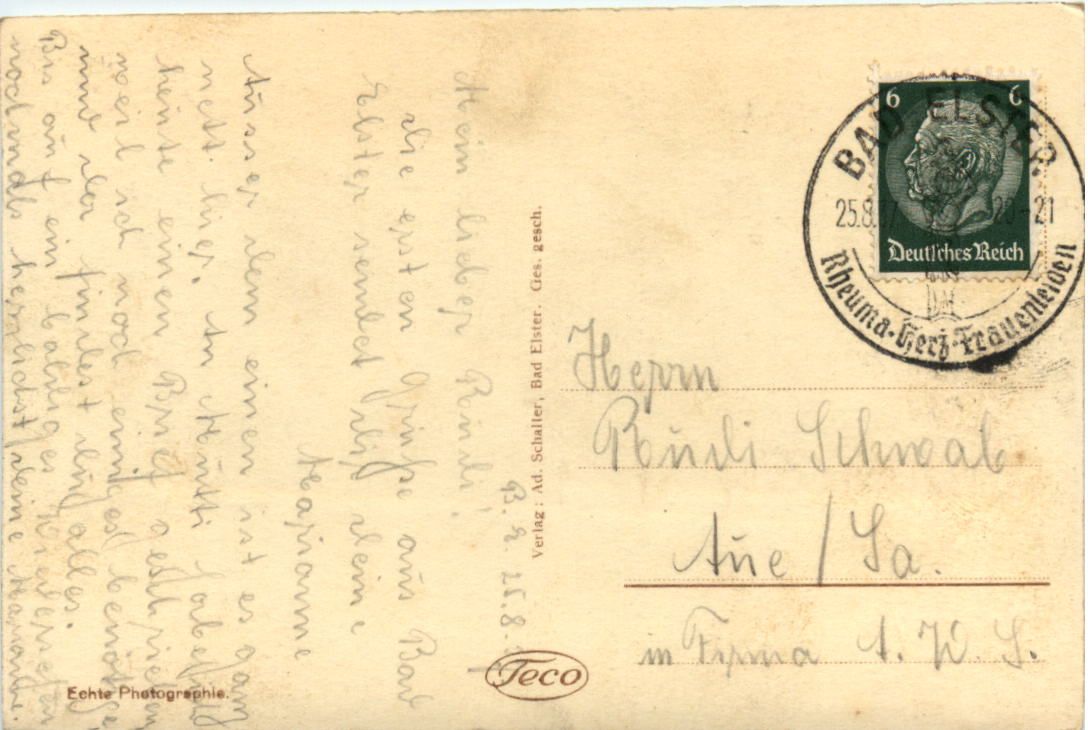 B. E. 25.8.37
Mein lieber Rudi!
die ersten Grüße aus Bad
Elster sendet dir deine
Marianne
Ausser dem einen ist es ganz
nett hier. An Mutti habe ich
heute einen Brief geschrieben
weil ich noch einiges benötige
Bis auf ein baldiges Wiedersehen
nochmals herzlichst deine Marianne.
Echte Photographie.
Verlag: Ad. Schaller, Bad Elster. Ges. gesch.
Teco
6 6
Deutsches Reich
BAD ELSTER
25.8.37 20-21
Rheuma-Herz-Frauenleiden
Herrn
Rudi Schwab
Aue / Sa.
in Firma A. W. S.